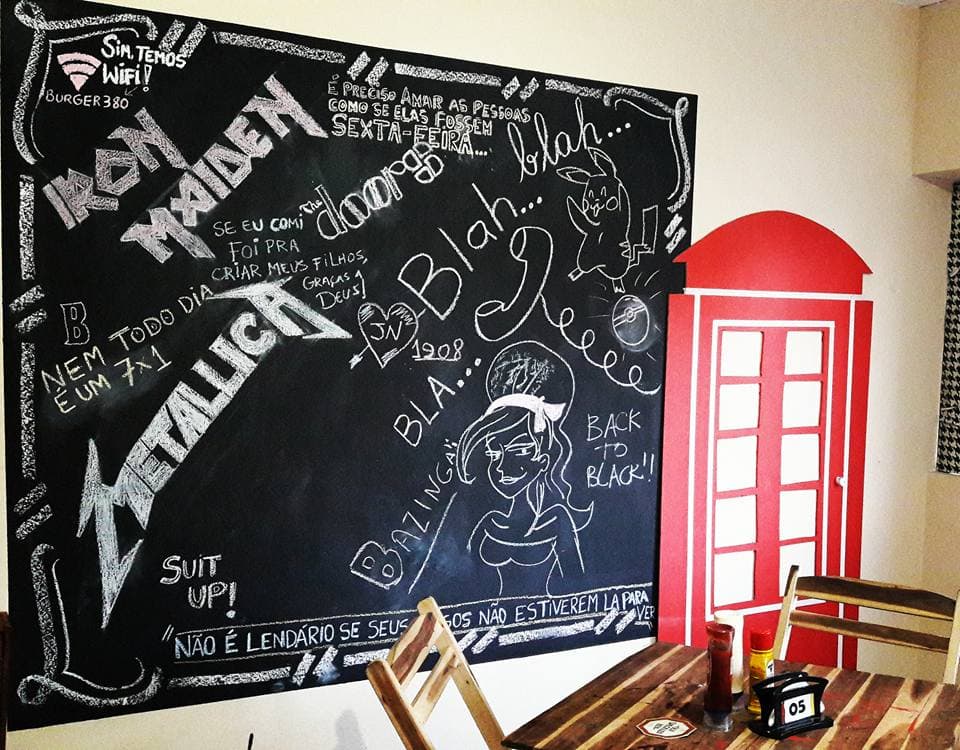 SIM, TEMOS
WiFi!
BURGER380
IRON
MAIDEN
É PRECISO AMAR AS PESSOAS
COMO SE ELAS FOSSEM
SEXTA-FEIRA...
blah...
the doors
SE EU COMI
FOI PRA
CRIAR MEUS FILHOS,
GRAÇAS A
DEUS!
Blah...
B
NEM TODO DIA
É UM 7x1
METALLICA
JN
1908
BLA...
BACK
TO
BLACK!!
BAZINGA!
SUIT
UP!
"NÃO É LENDÁRIO SE SEUS GOS NÃO ESTIVEREM LA PARA
VER
05